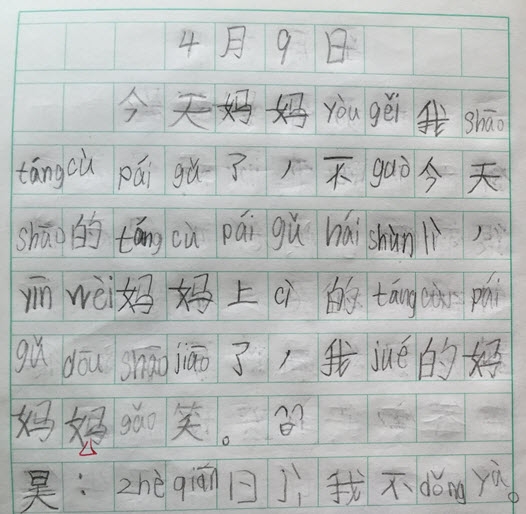 4月9日
今天妈妈yòu gěi我shāo
táng cù pái gǔ了，不guò今天
shāo的táng cù pái gǔ hái shùn lì，
yīn wèi妈妈上cì的táng cù pái
gǔ dōu shāo jiāo了，我jué的妈
妈妈gǎo笑。
昊：zhè qiān日了，我不dǒng yà。